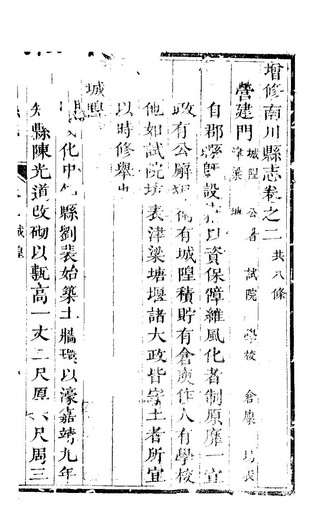 增修南川縣志卷之二 共八條
營建門 城隍 公署 試院 學校 倉廩 坊表
津梁
自郡縣 設 以資保障維風化者制原靡一宜
政有公廨 衛有城隍積貯有倉庾作人有學校
他如試院坊表津梁塘堰諸大政皆守土者所宜
以時修舉也
城隍
化中知縣劉裴始築土牆環以濠嘉靖九年
知縣陳光道改砌以 高一丈二尺厚 尺周三